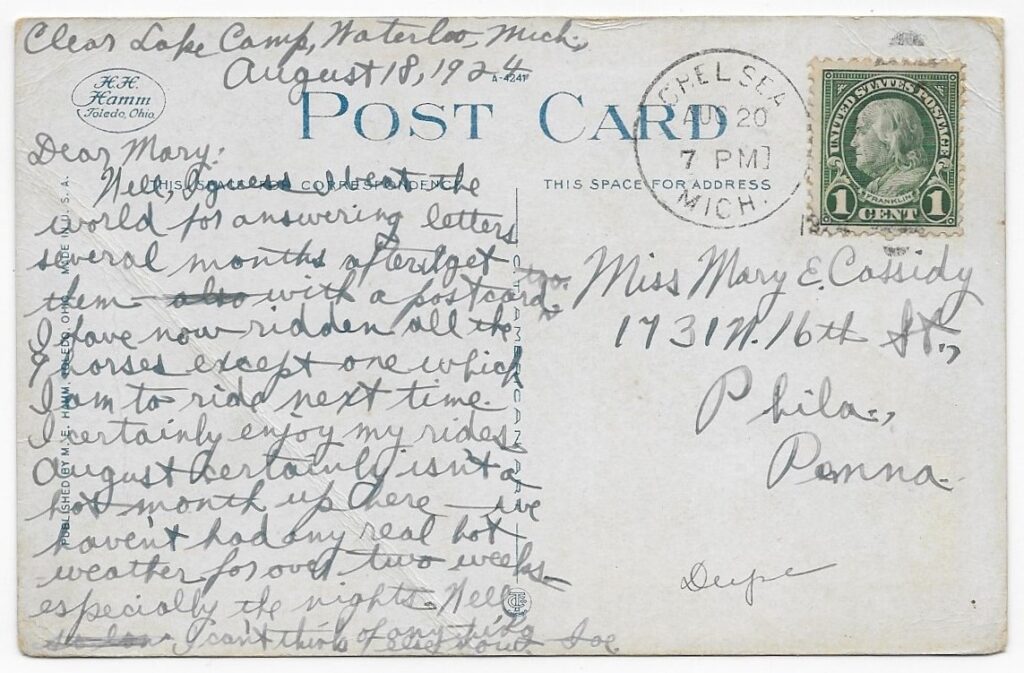 Clear Lake Camp, Waterloo, Mich.,
August 18, 1924
A-4241
H.H.
Hamm
Toledo, Ohio.
POST CARD
CHELSEA
AUG 20
7 PM
MICH.
UNITED STATES POSTAGE
FRANKLIN
1 CENT 1
THIS SPACE FOR CORRESPONDENCE
THIS SPACE FOR ADDRESS
Dear Mary:
Well, I guess I beat the
world for answering letters
several months after I get
them - also with a postcard, too.
I have now ridden all the
9 horses except one which
I am to ride next time.
I certainly enjoy my rides.
August certainly isn't a
hot month up here - we
haven't had any real hot
weather for over two weeks -
especially the nights. Well
I can't think of anything
else now. Joe
Miss Mary E. Cassidy
1731 N. 16th St.,
Phila.,
Penna.
Dupe
PUBLISHED BY M. E. HAMM, TOLEDO, OHIO. MADE IN U. S. A.